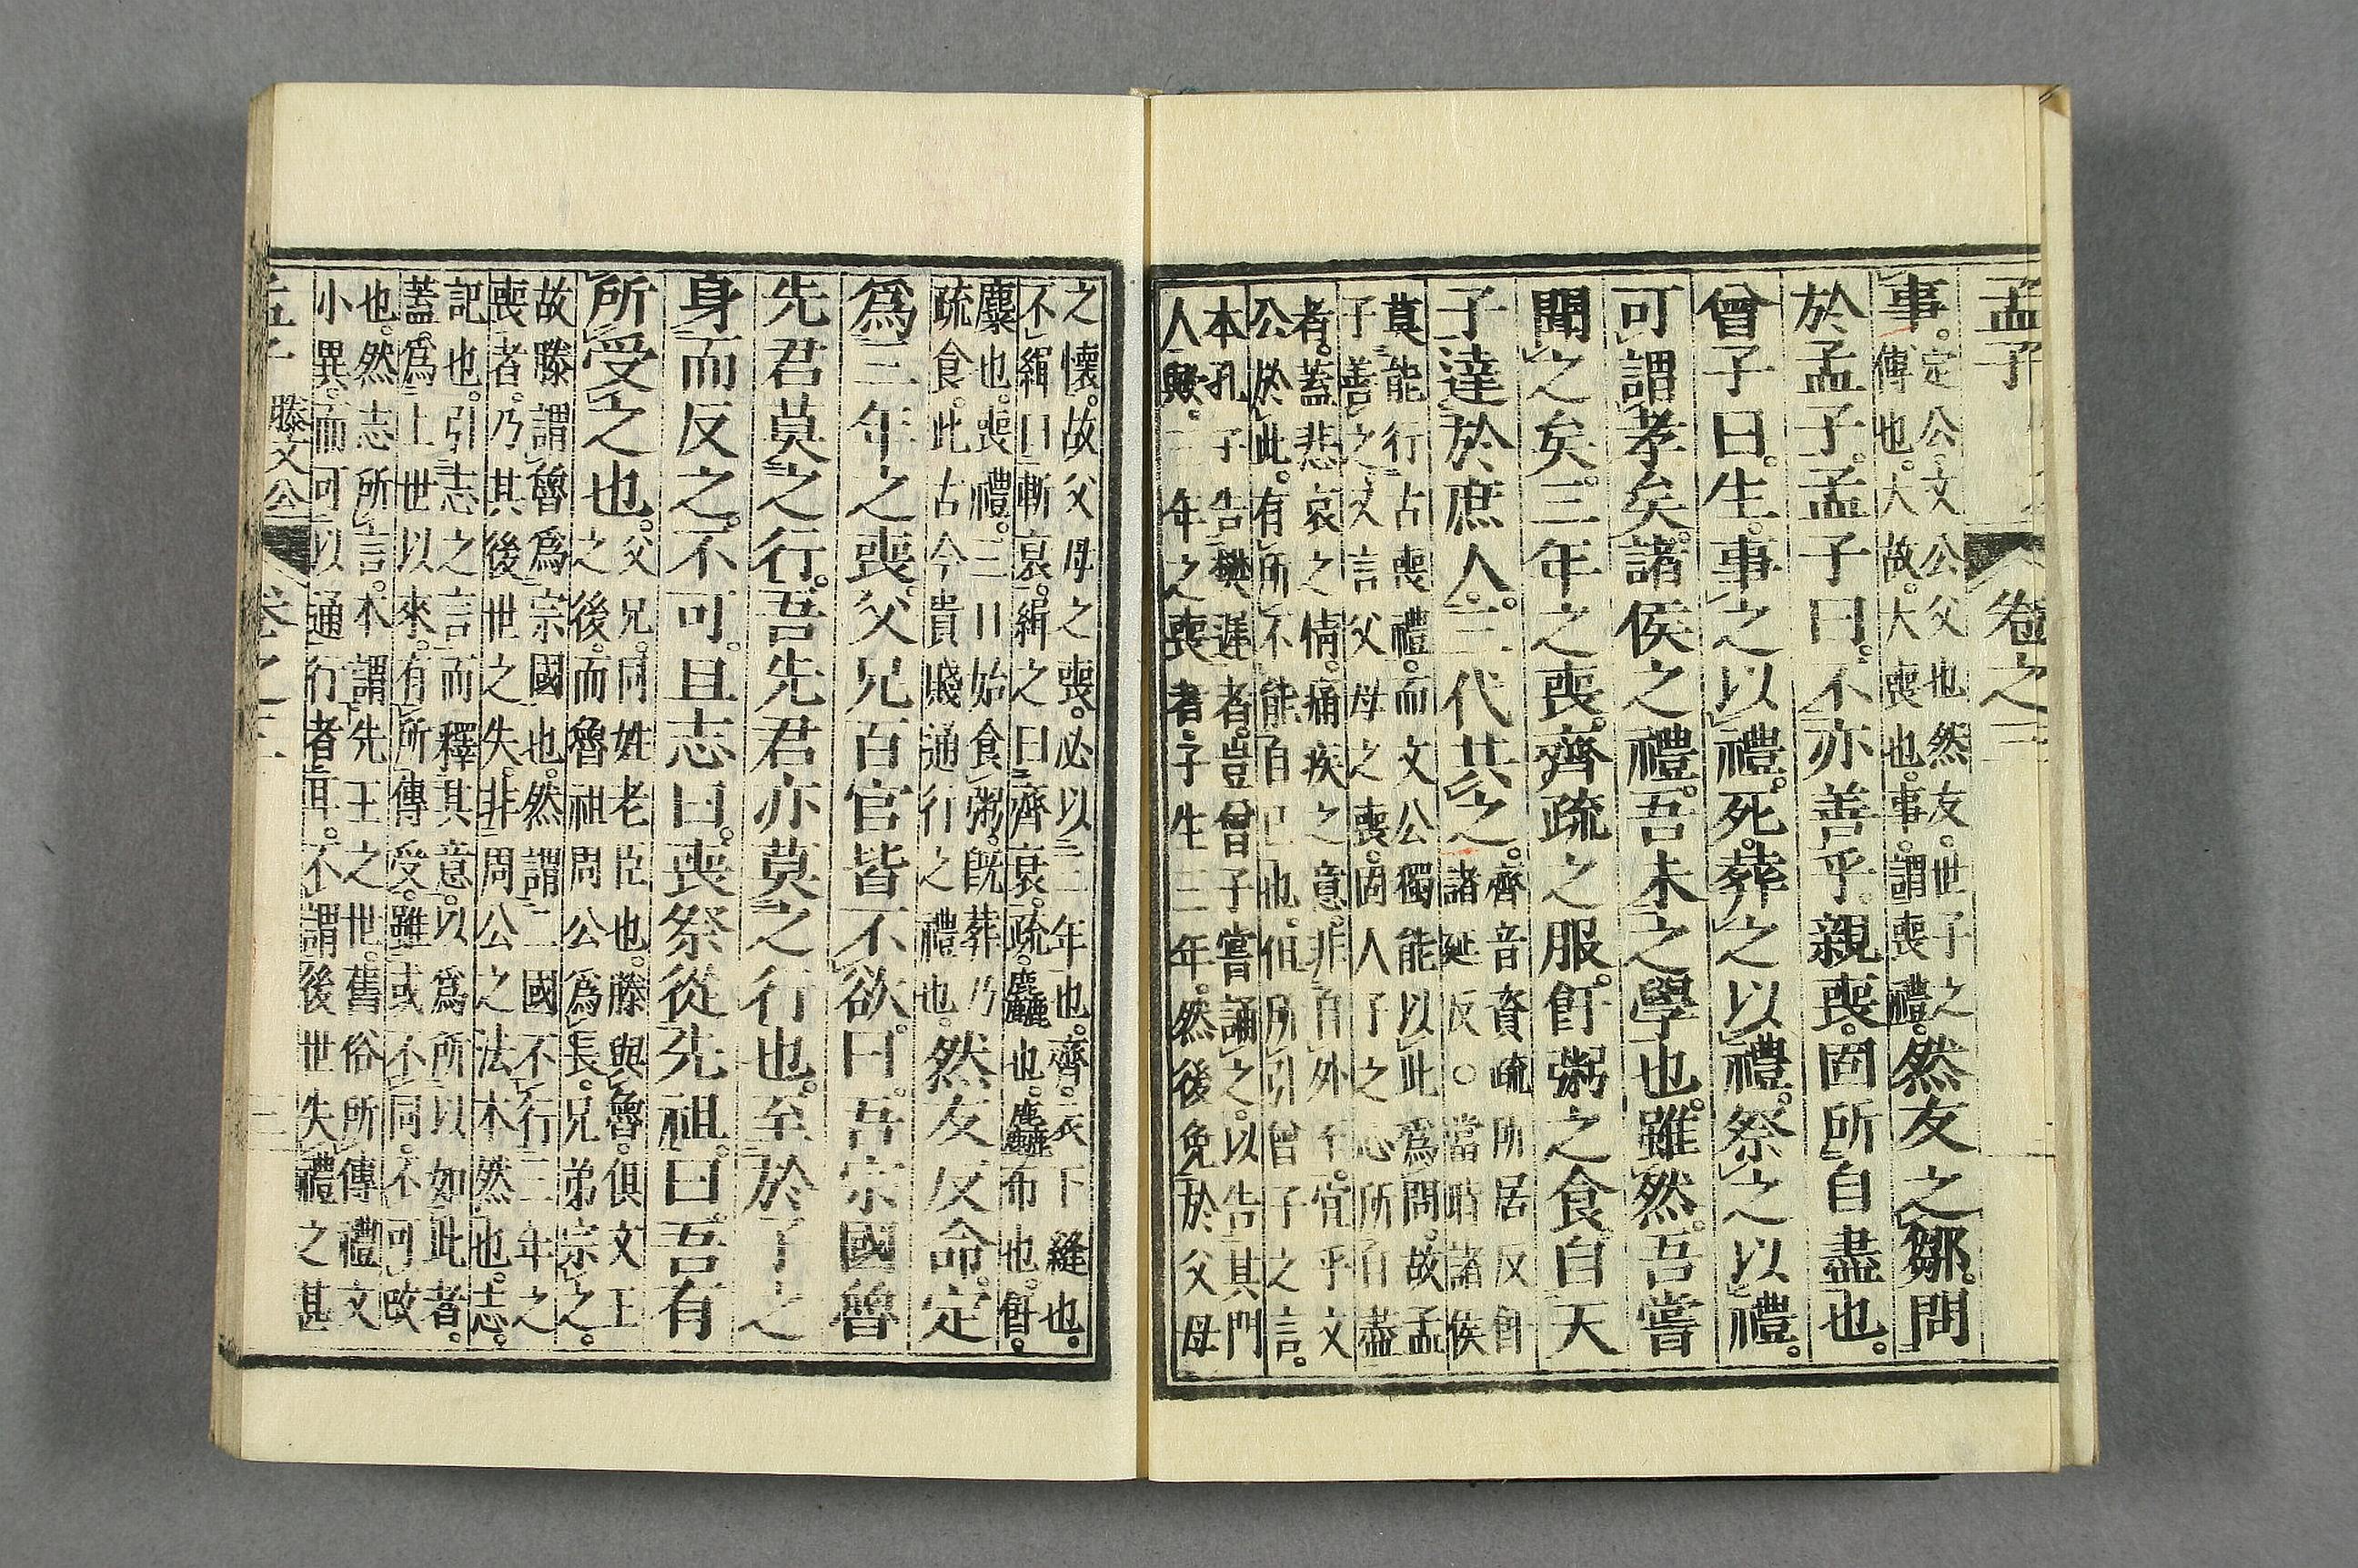 孟子 卷之三
事。定公。文公父也然友。世子之
傅也。大故。大喪也。事。謂喪禮。然友之鄒。問
於孟子。孟子曰。不亦善乎。親喪。固所自盡也。
曾子曰。生。事之以禮。死。葬之以禮。祭之以禮。
可謂孝矣。諸侯之禮。吾未之學也。雖然。吾嘗
聞之矣。三年之喪。齊疏之服。飦粥之食。自天
子達於庶人。三代共之。齊音資疏所居反飦
諸延反。○當時諸侯
莫能行古喪禮。而文公獨能以此爲問。故孟
子善之。又言父母之喪。固人子之心所自盡
者。蓋悲哀之情。痛疾之意。非自外至。宜乎文
公於此。有所不能自已也。但所引曾子之言。
本孔子告樊遲者。豈曾子嘗誦之。以告其門
人歟。三年之喪者。子生三年。然後免於父母
之懷。故父母之喪。必以三年也。齊。衣下縫也。
不緝曰斬衰。緝之曰齊衰。疏。麤也。麤布也。飦。
麋也。喪禮。三日始食粥。旣葬乃
疏食。此古今貴賤通行之禮也。然友反命。定
爲三年之喪。父兄百官皆不欲。曰。吾宗國魯
先君莫之行。吾先君亦莫之行也。至於子之
身而反之。不可。且志曰。喪祭從先祖。曰。吾有
所受之也。父兄。同姓老臣也。滕與魯。俱文王
之後。而魯祖周公爲長。兄弟宗之。
故滕謂魯爲宗國也。然謂二國不行三年之
喪者。乃其後世之失。非周公之法本然也。志。
記也。引志之言而釋其意。以爲所以如此者。
蓋爲上世以來。有所傳受。雖或不同。不可改
也。然志所言。本謂先王之世。舊俗所傳禮文
小異。而可以通行者耳。不謂後世失禮之甚
孟子 滕文公 卷之三 三